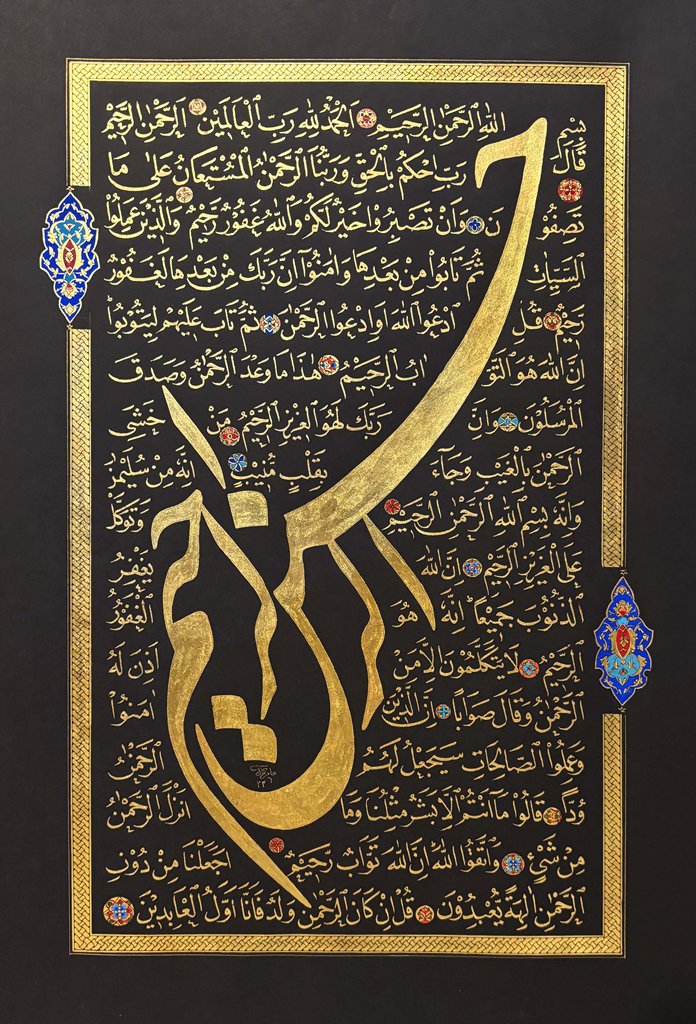 بسم الله الرحمن الرحيم الحمد لله رب العالمين الرحمن الرحيم
قال رب احكم بالحق وربنا الرحمن المستعان على ما
تصفون وان تصبروا خير لكم والله غفور رحيم والذين عملوا
السيئات ثم تابوا من بعدها وامنوا ان ربك من بعدها لغفور
رحيم قل ادعوا الله او ادعوا الرحمن ثم تاب عليهم ليتوبوا
ان الله هو التواب الرحيم هذا ما وعد الرحمن وصدق
المرسلون وان ربك لهو العزيز الرحيم من خشي
الرحمن بالغيب وجاء بقلب منيب انه من سليمن
وانه بسم الله الرحمن الرحيم وتوكل
على العزيز الرحيم ان الله يغفر
الذنوب جميعا انه هو الغفور
الرحيم لا يتكلمون الا من اذن له
الرحمن وقال صوابا ان الذين امنوا
وعملوا الصالحات سيجعل لهم الرحمن
ودا قالوا ما انتم الا بشر مثلنا وما انزل الرحمن
من شيء واتقوا الله ان الله تواب رحيم اجعلنا من دون
الرحمن الهة يعبدون قل ان كان للرحمن ولد فانا اول العابدين
الرحمن الرحيم